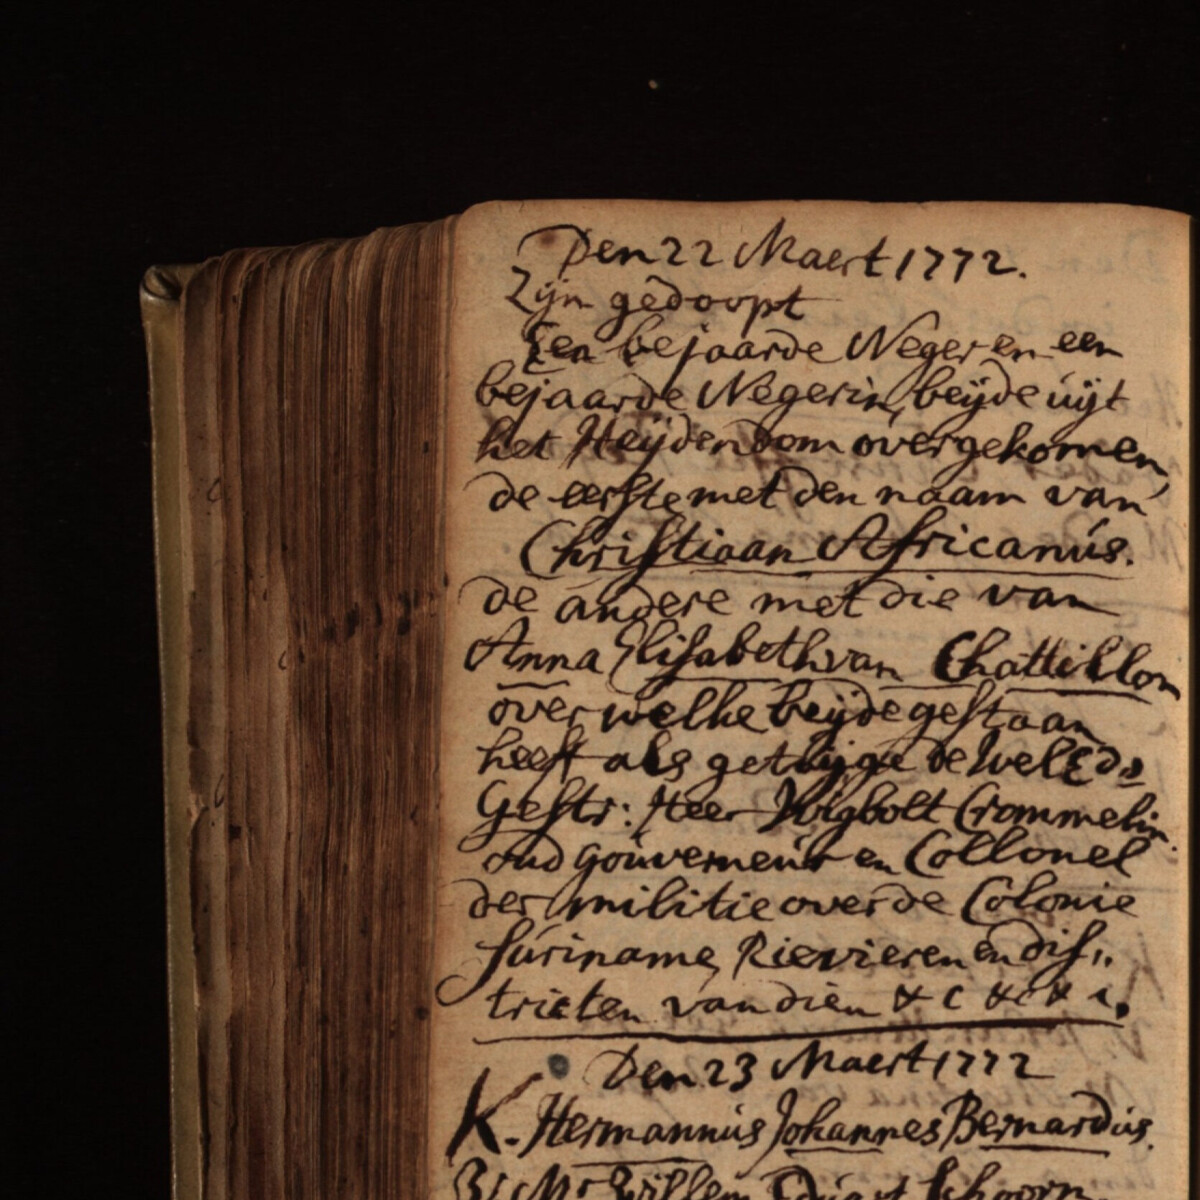 Den 22 Maert 1772.
Zijn gedoopt
Een bejaarde Neger en een
bejaarde Negerin, beijde uijt
het Heijdendom overgekomen,
de eerste met den naam van
Christiaan Africanus.
de andere met die van
Anna Elisabeth van Chattillon
over welke beijde gestaan
heeft als getuijge de Wel Ed„
Gestr: Heer Wigbolt Crommelin
oud Gouverneur en Collonel
der militie over de Colonie
Suriname, Rievieren en dis„
tricten van dien &c &c &c.
Den 23 Maert 1772
K. Hermannus Johannes Bernardus.
Mr Willem